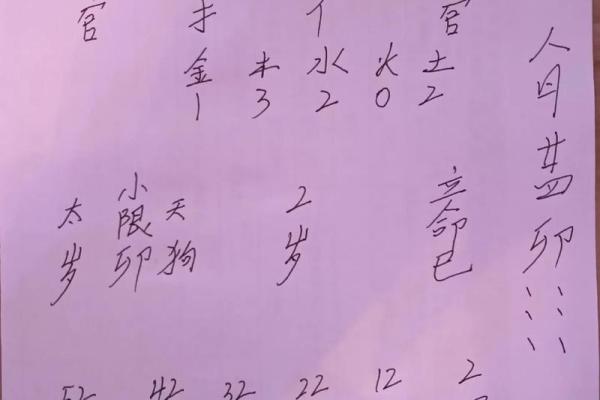 八月廿四卯
宫 才 宫
金 木 水 火 土
1 3 2 0 2
立命巳
2岁
天狗
小限卯
太岁
52 42 32 22 12 2